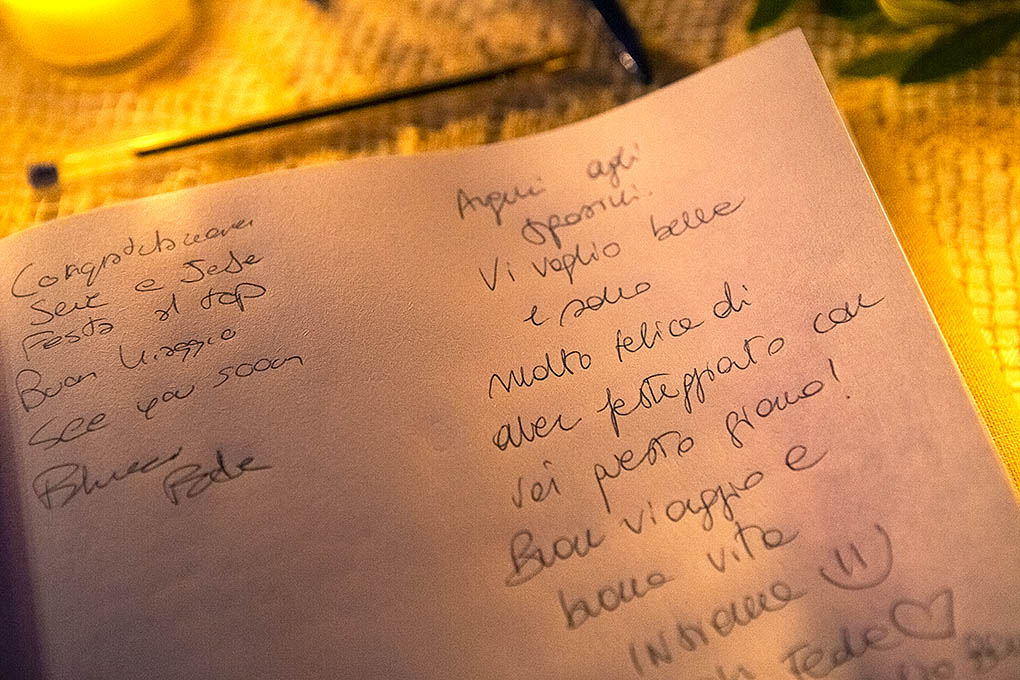 Congratulazioni
Sere e Jede
Festa al top
Buon Viaggio
See you sooon
Auguri agli
sposini.
Vi voglio bene
e sono
molto felice di
aver festeggiato con
voi questo giorno!
Buon viaggio e
buona vita
insieme
Fede